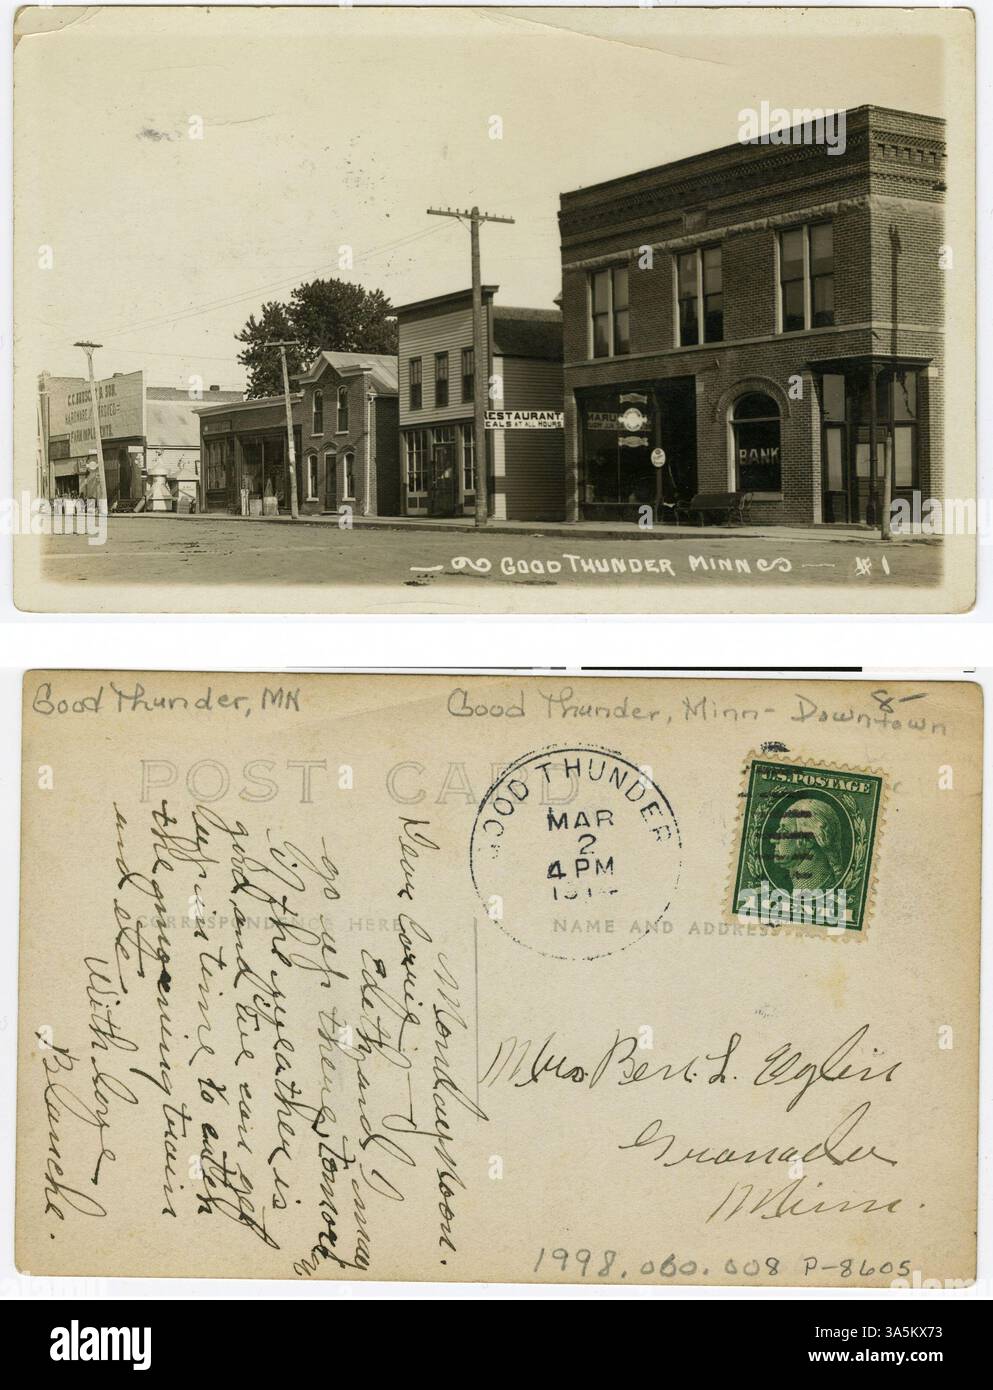 HARDWARE
FARM IMPLEMENTS
RESTAURANT.
MEALS AT ALL HOURS.
BANK
GOOD THUNDER MINN #1
Good Thunder, MN
Good Thunder, Minn - Downtown
8-
POST CARD
GOOD THUNDER
MAR
2
4 PM
1914
U.S. POSTAGE
1 CENT 1
CORRESPONDENCE HERE
NAME AND ADDRESS
Monday Noon.
Dear Corrie,
Edith and I may
go up there tomorrow
if the weather is
good and we can get
up in time to catch
the morning train
and etc.
With love
Blanche.
Mrs. Bert. L. Eglin
Granada
Minn.
1998.060.008 P-8605
alamy
alamy
Image ID: 3A5KX73
www.alamy.com